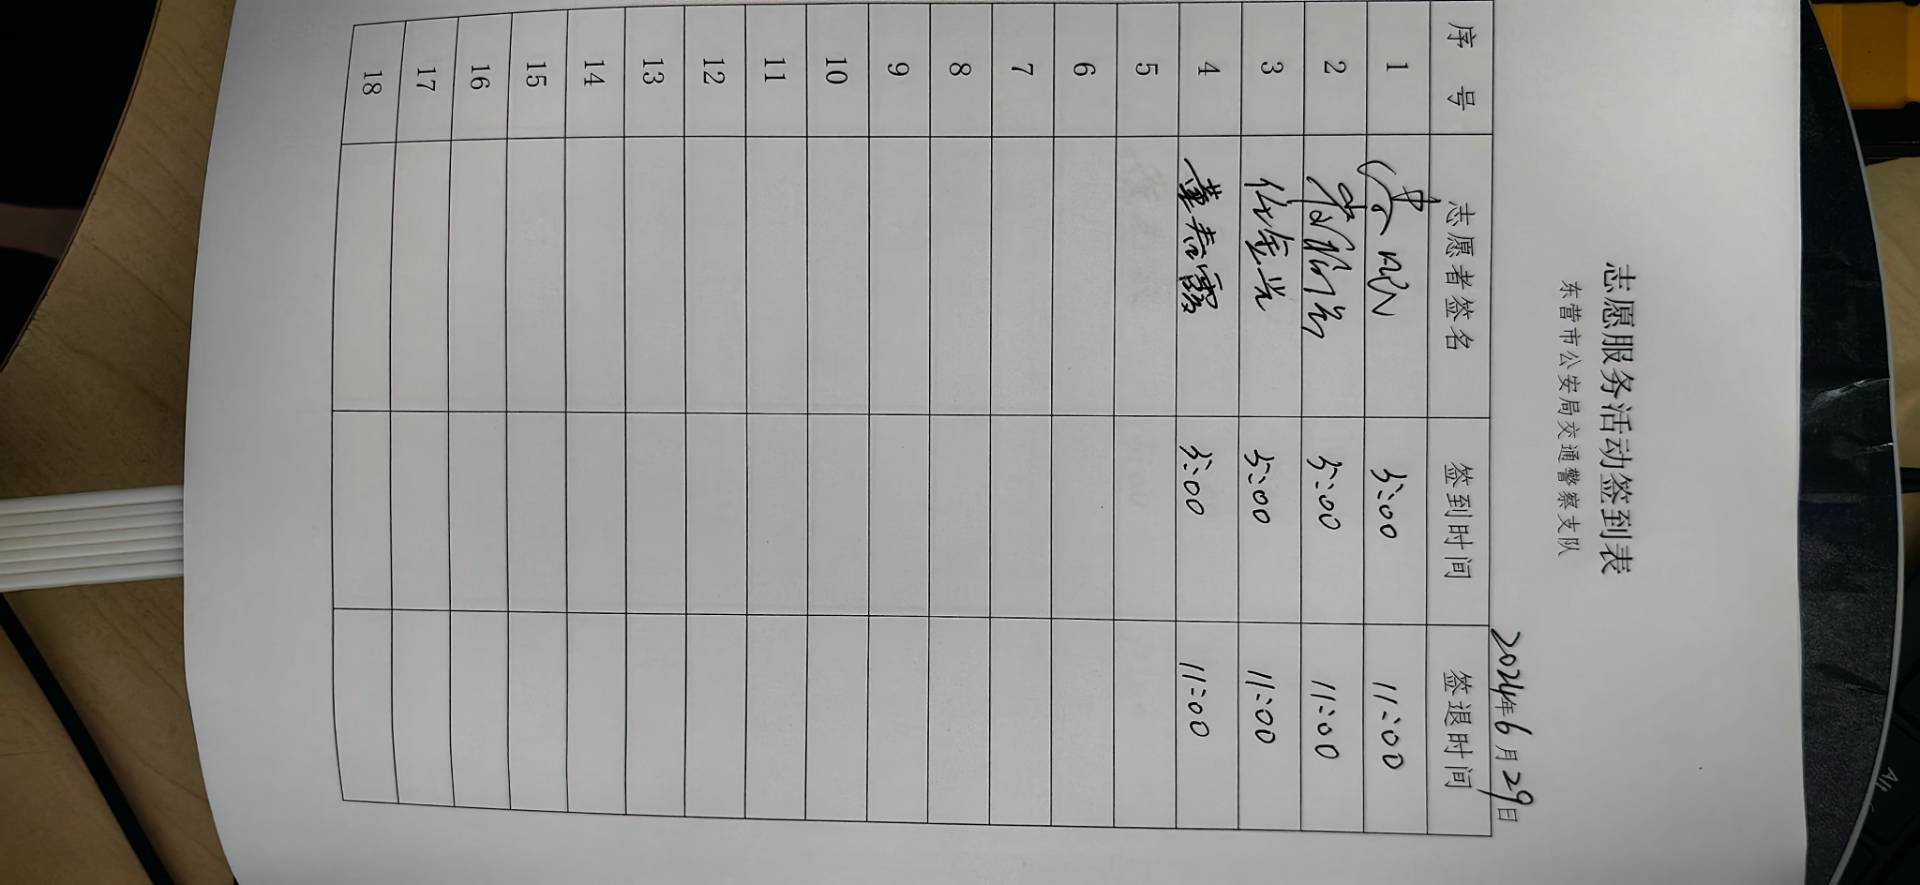 志愿服务活动签到表
东营市公安局交通警察支队
2024年6月29日
序号 志愿者签名 签到时间 签退时间
1 5:00 11:00
2 5:00 11:00
3 任金光 5:00 11:00
4 董春露 5:00 11:00
5
6
7
8
9
10
11
12
13
14
15
16
17
18